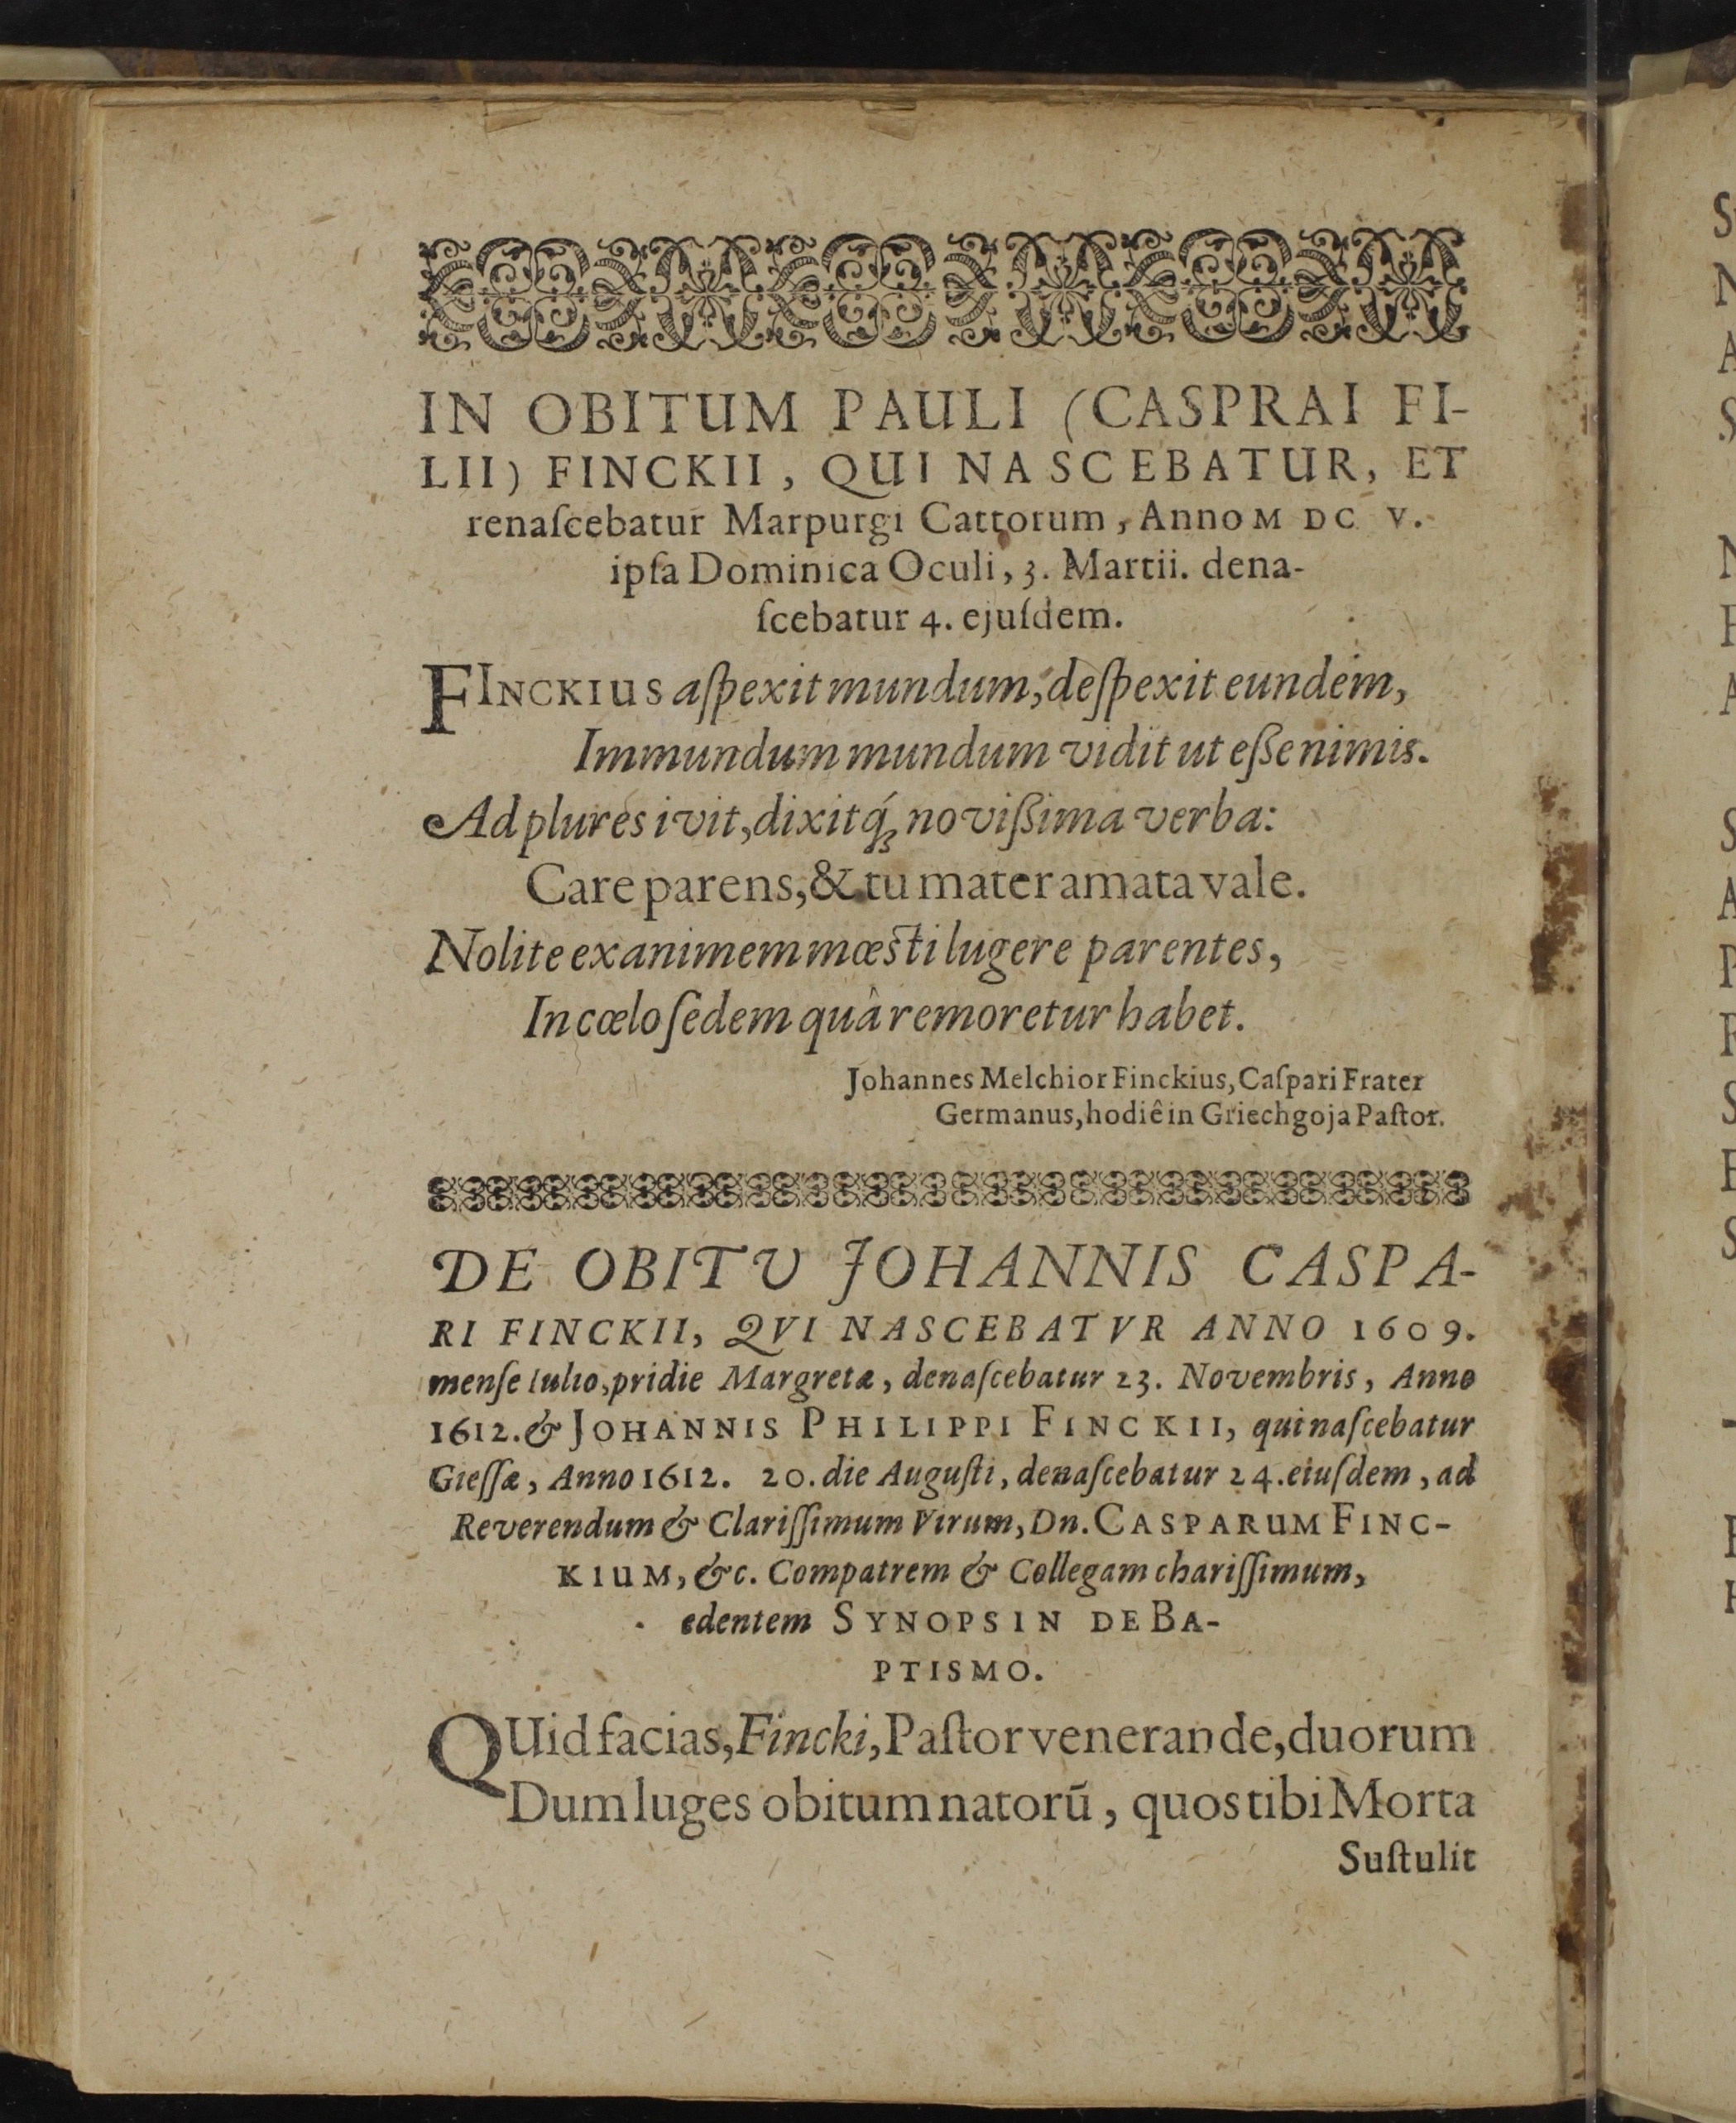 IN OBITUM PAULI (CASPRAI FI-
LII) FINCKII, QUI NASCEBATUR, ET
renaſcebatur Marpurgi Cattorum, Anno M DC V.
ipſa Dominica Oculi, 3. Martii. dena-
ſcebatur 4. ejuſdem.
FINCKIUS aſpexit mundum, deſpexit eundem,
Immundum mundum vidit ut eſſe nimis.
Ad plures ivit, dixitq́ꝫ noviſſima verba:
Care parens, & tu mater amata vale.
Nolite exanimem mœsti lugere parentes,
In cœlo ſedem quâ remoretur habet.
Johannes Melchior Finckius, Caſpari Frater
Germanus, hodiê in Griechgoja Paſtor.
DE OBITU JOHANNIS CASPA-
RI FINCKII, QVI NASCEBATVR ANNO 1609.
menſe Iulio, pridie Margretæ, denaſcebatur 23. Novembris, Anno
1612. & JOHANNIS PHILIPPI FINCKII, qui naſcebatur
Gieſſæ, Anno 1612. 20. die Auguſti, denaſcebatur 24. eiuſdem, ad
Reverendum & Clariſſimum Virum, Dn. CASPARUM FINC-
KIUM, &c. Compatrem & Collegam chariſſimum,
edentem SYNOPSIN DE BA-
PTISMO.
QUid facias, Fincki, Paſtor venerande, duorum
Dum luges obitum natorū, quos tibi Morta
Suſtulit